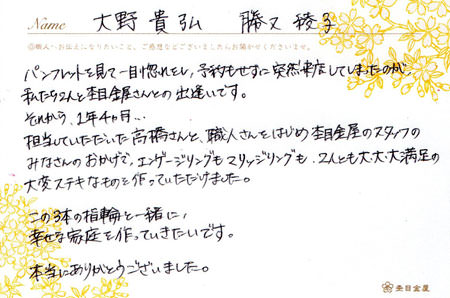 Name 大野貴弘 勝又綾子
◎職人へお伝えになりたいこと、ご感想などございましたらお聞かせくださいませ。
パンフレットを見て一目惚れをし、予約もせずに突然来店してしまったのが、
私たち2人と杢目金屋さんとの出逢いです。
それから、1年4ヶ月…
担当していただいた高橋さんと、職人さんをはじめ杢目金屋のスタッフの
みなさんのおかげで、エンゲージリングもマリッジリングも、2人とも大・大・大満足の
大変ステキなものを作っていただけました。
この3本の指輪と一緒に、
幸せな家庭を作っていきたいです。
本当にありがとうございました。
杢目金屋